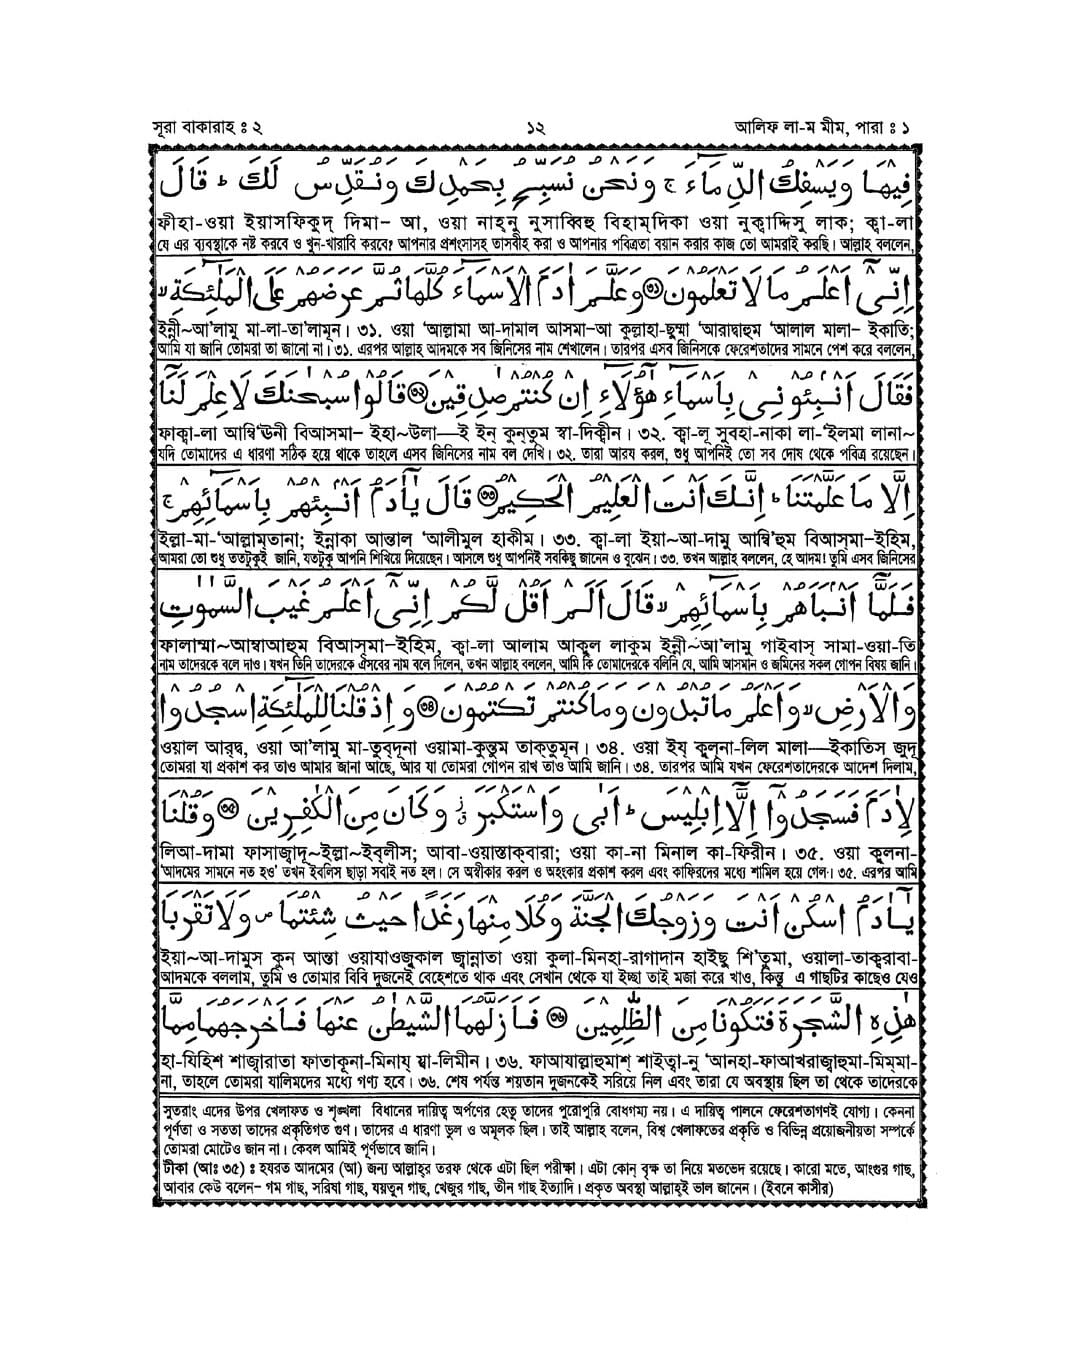 সূরা বাকারাহ ঃ ২
১২
আলিফ লা-ম মীম, পারা ঃ ১
فِيْهَا وَيَسْفِكُ الدِّمَآءَ ۚ وَنَحْنُ نُسَبِّحُ بِحَمْدِكَ وَنُقَدِّسُ لَكَ ؕ قَالَ
ফীহা-ওয়া ইয়াসফিকুদ্ দিমা− আ, ওয়া নাহ্নু নুসাব্বিহু বিহাম্দিকা ওয়া নুক্বাদ্দিসু লাক; ক্বা-লা
যে এর ব্যবস্থাকে নষ্ট করবে ও খুন-খারাবি করবে? আপনার প্রশংসাসহ তাসবীহ করা ও আপনার পবিত্রতা বয়ান করার কাজ তো আমরাই করছি। আল্লাহ বললেন,
اِنِّىْٓ اَعْلَمُ مَا لَا تَعْلَمُوْنَ ﴿۳۱﴾ وَعَلَّمَ اٰدَمَ الْاَسْمَآءَ كُلَّهَا ثُمَّ عَرَضَهُمْ عَلَى الْمَلٰٓئِكَةِ ۙ
ইন্নী~আ’লামু মা-লা-তা’লামূন। ৩১. ওয়া ‘আল্লামা আ-দামাল আসমা−আ কুল্লাহা-ছুম্মা ‘আরাদ্বাহুম ‘আলাল মালা− ইকাতি;
আমি যা জানি তোমরা তা জানো না। ৩১. এরপর আল্লাহ আদমকে সব জিনিসের নাম শেখালেন। তারপর এসব জিনিসকে ফেরেশতাদের সামনে পেশ করে বললেন,
فَقَالَ اَنْۢبِـُٔوْنِىْ بِاَسْمَآءِ هٰٓؤُلَآءِ اِنْ كُنْتُمْ صٰدِقِيْنَ ﴿۳۲﴾ قَالُوْا سُبْحٰنَكَ لَا عِلْمَ لَنَآ
ফাক্বা-লা আম্বিঊনী বিআসমা− ইহা~উলা—ই ইন্ কুন্তুম স্বা-দিক্বীন। ৩২. ক্বা-লূ সুবহা-নাকা লা-‘ইলমা লানা~
যদি তোমাদের এ ধারণা সঠিক হয়ে থাকে তাহলে এসব জিনিসের নাম বল দেখি। ৩২. তারা আরয করল, শুধু আপনিই তো সব দোষ থেকে পবিত্র রয়েছেন।
اِلَّا مَا عَلَّمْتَنَا ؕ اِنَّكَ اَنْتَ الْعَلِيْمُ الْحَكِيْمُ ﴿۳۳﴾ قَالَ يٰٓاٰدَمُ اَنْۢبِئْهُمْ بِاَسْمَآئِهِمْ ۚ
ইল্লা-মা-‘আল্লাম্তানা; ইন্নাকা আন্তাল ‘আলীমুল হাকীম। ৩৩. ক্বা-লা ইয়া~আ-দামু আম্বি’হুম বিআসমা−ইহিম,
আমরা তো শুধু ততটুকুই জানি, যতটুকু আপনি শিখিয়ে দিয়েছেন। আসলে শুধু আপনিই সবকিছু জানেন ও বুঝেন। ৩৩. তখন আল্লাহ বললেন, হে আদম! তুমি এসব জিনিসের
فَلَمَّآ اَنْۢبَاَهُمْ بِاَسْمَآئِهِمْ ۙ قَالَ اَلَمْ اَقُلْ لَّكُمْ اِنِّىْٓ اَعْلَمُ غَيْبَ السَّمٰوٰتِ
ফালাম্মা~আম্বাআহুম বিআস্মা−ইহিম, ক্বা-লা আলাম আকুল লাকুম ইন্নী~আ’লামু গাইবাস্ সামা-ওয়া-তি
নাম তাদেরকে বলে দাও। যখন তিনি তাদেরকে ঐসবের নাম বলে দিলেন, তখন আল্লাহ বললেন, আমি কি তোমাদেরকে বলিনি যে, আমি আসমান ও জমিনের সকল গোপন বিষয় জানি।
وَالْاَرْضِ ۙ وَاَعْلَمُ مَا تُبْدُوْنَ وَمَا كُنْتُمْ تَكْتُمُوْنَ ﴿۳۴﴾ وَاِذْ قُلْنَا لِلْمَلٰٓئِكَةِ اسْجُدُوْا
ওয়াল আরদ্ব, ওয়া আ’লামু মা-তুব্দূনা ওয়ামা-কুন্তুম তাক্তুমূন। ৩৪. ওয়া ইয্ কুল্না-লিল মালা—ইকাতিস জুদূ
তোমরা যা প্রকাশ কর তাও আমার জানা আছে, আর যা তোমরা গোপন রাখ তাও আমি জানি। ৩৪. তারপর আমি যখন ফেরেশতাদেরকে আদেশ দিলাম,
لِاٰدَمَ فَسَجَدُوْٓا اِلَّآ اِبْلِيْسَ ؕ اَبٰى وَاسْتَكْبَرَ ۫ وَكَانَ مِنَ الْكٰفِرِيْنَ ﴿۳۵﴾ وَقُلْنَا
লিআ-দামা ফাসাজ্বাদূ~ইল্লা~ইব্লীস; আবা-ওয়াস্তাক্বারা; ওয়া কা-না মিনাল কা-ফিরীন। ৩৫. ওয়া কুলনা-
‘আদমের সামনে নত হও’ তখন ইবলিস ছাড়া সবাই নত হল। সে অস্বীকার করল ও অহংকার প্রকাশ করল এবং কাফিরদের মধ্যে শামিল হয়ে গেল। ৩৫. এরপর আমি
يٰٓاٰدَمُ اسْكُنْ اَنْتَ وَزَوْجُكَ الْجَنَّةَ وَكُلَا مِنْهَا رَغَدًا حَيْثُ شِئْتُمَا ۪ وَلَا تَقْرَبَا
ইয়া~আ-দামুস কুন আন্তা ওয়াযাওজুকাল জ্বান্নাতা ওয়া কুলা-মিনহা-রাগাদান হাইছু শি’তুমা, ওয়ালা-তাক্বরাবা-
আদমকে বললাম, তুমি ও তোমার বিবি দুজনেই বেহেশতে থাক এবং সেখান থেকে যা ইচ্ছা তাই মজা করে খাও, কিন্তু এ গাছটির কাছেও যেও
هٰذِهِ الشَّجَرَةَ فَتَكُوْنَا مِنَ الظّٰلِمِيْنَ ﴿۳۶﴾ فَاَزَلَّهُمَا الشَّيْطٰنُ عَنْهَا فَاَخْرَجَهُمَا مِمَّا
হা-যিহিশ শাজ্বারাতা ফাতাকূনা-মিনায্ য্বা-লিমীন। ৩৬. ফাআযাল্লাহুমাশ্ শাইত্বা-নু ‘আনহা-ফাআখরাজ্বাহুমা-মিম্মা-
না, তাহলে তোমরা যালিমদের মধ্যে গণ্য হবে। ৩৬. শেষ পর্যন্ত শয়তান দুজনকেই সরিয়ে নিল এবং তারা যে অবস্থায় ছিল তা থেকে তাদেরকে
সুতরাং এদের উপর খেলাফত ও শৃঙ্খলা বিধানের দায়িত্ব অর্পণের হেতু তাদের পুরোপুরি বোধগম্য নয়। এ দায়িত্ব পালনে ফেরেশতাগণই যোগ্য। কেননা
পূর্ণতা ও সততা তাদের প্রকৃতিগত গুণ। তাদের এ ধারণা ভুল ও অমূলক ছিল। তাই আল্লাহ বলেন, বিশ্ব খেলাফতের প্রকৃতি ও বিভিন্ন প্রয়োজনীয়তা সম্পর্কে
তোমরা মোটেও জান না। কেবল আমিই পূর্ণভাবে জানি।
টীকা (আঃ ৩৫) ঃ হযরত আদমের (আ) জন্য আল্লাহর তরফ থেকে এটা ছিল পরীক্ষা। এটা কোন্ বৃক্ষ তা নিয়ে মতভেদ রয়েছে। কারো মতে, আংগুর গাছ,
আবার কেউ বলেন− গম গাছ, সরিষা গাছ, যয়তুন গাছ, খেজুর গাছ, তীন গাছ ইত্যাদি। প্রকৃত অবস্থা আল্লাহ্ই ভাল জানেন। (ইবনে কাসীর)